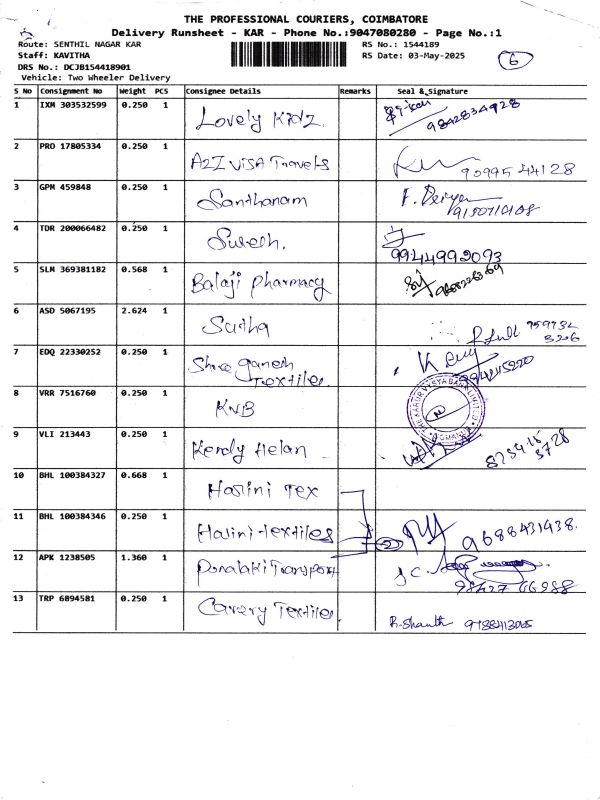 THE PROFESSIONAL COURIERS, COIMBATORE
Delivery Runsheet - KAR - Phone No.:9047080280 - Page No.:1
Route: SENTHIL NAGAR KAR RS No.: 1544189
Staff: KAVITHA RS Date: 03-May-2025 6
DRS No.: DCJB154418901
Vehicle: Two Wheeler Delivery
S No Consignment No Weight PCS Consignee Details Remarks Seal & Signature
1 IXM 303532599 0.250 1 Lovely Kidz 9842834928
2 PRO 17805334 0.250 1 A2Z VISA Travels 90995 44128
3 GPM 459848 0.250 1 Santhanam
4 TDR 200066482 0.250 1 Suresh. 9944992093
5 SLM 369381182 0.568 1 Balaji Pharmacy
6 ASD 5067195 2.624 1
7 EDQ 22330252 0.250 1 Shree Ganesh
Textiles
8 VRR 7516760 0.250 1 KVB
9 VLI 213443 0.250 1
10 BHL 100384327 0.668 1 Harini Tex
11 BHL 100384346 0.250 1 Harini Textiles 9688431438.
12 APK 1238505 1.360 1 Transport
13 TRP 6894581 0.250 1 Textiles